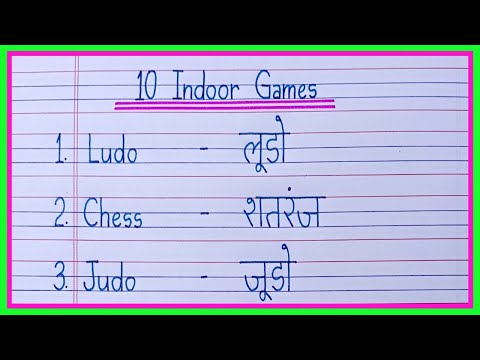 10 Indoor Games
1. Ludo - लूडो
2. Chess - शतरंज
3. Judo - जूडो